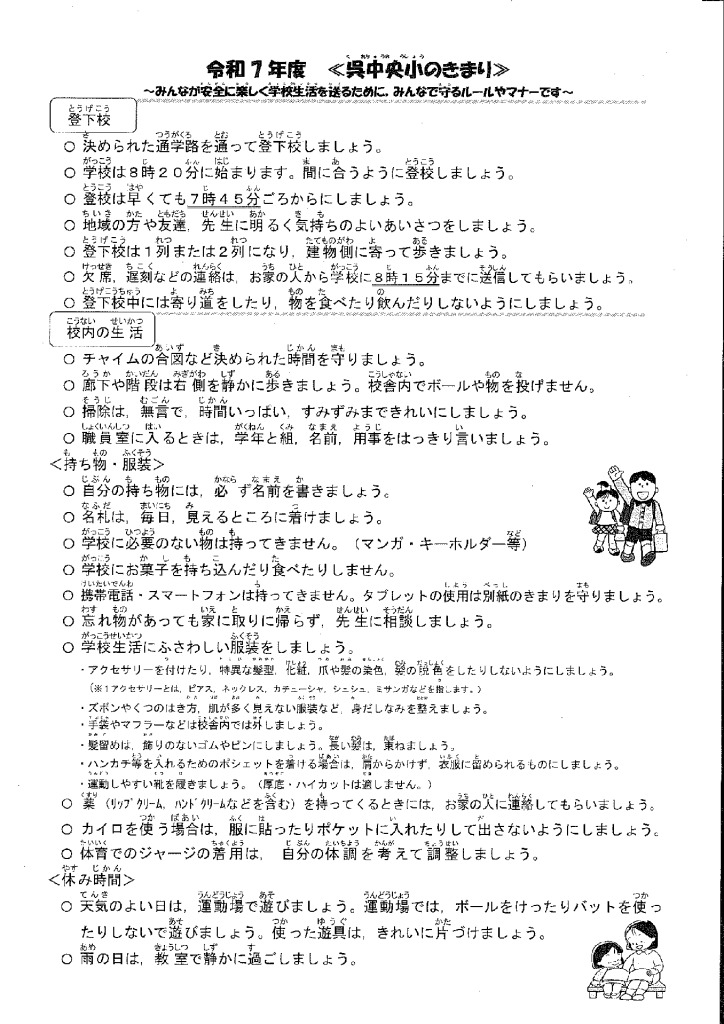 令和７年度　≪呉中央小のきまり≫
～みんなが安全に楽しく学校生活を送るために，みんなで守るルールやマナーです～
登下校
○ 決められた通学路を通って登下校しましょう。
○ 学校は８時２０分に始まります。間に合うように登校しましょう。
○ 登校は早くても７時４５分ごろからにしましょう。
○ 地域の方や友達，先生に明るく気持ちのよいあいさつをしましょう。
○ 登下校は１列または２列になり，建物側に寄って歩きましょう。
○ 欠席，遅刻などの連絡は，お家の人から学校に８時１５分までに送信してもらいましょう。
○ 登下校中には寄り道をしたり，物を食べたり飲んだりしないようにしましょう。
校内の生活
○ チャイムの合図など決められた時間を守りましょう。
○ 廊下や階段は右側を静かに歩きましょう。校舎内でボールや物を投げません。
○ 掃除は，無言で，時間いっぱい，すみずみまできれいにしましょう。
○ 職員室に入るときは，学年と組，名前，用事をはっきり言いましょう。
＜持ち物・服装＞
○ 自分の持ち物には，必ず名前を書きましょう。
○ 名札は，毎日，見えるところに着けましょう。
○ 学校に必要のない物は持ってきません。（マンガ・キーホルダー等）
○ 学校にお菓子を持ち込んだり食べたりしません。
○ 携帯電話・スマートフォンは持ってきません。タブレットの使用は別紙のきまりを守りましょう。
○ 忘れ物があっても家に取りに帰らず，先生に相談しましょう。
○ 学校生活にふさわしい服装をしましょう。
・アクセサリーを付けたり，特異な髪型，化粧，爪や髪の染色，髪の脱色をしたりしないようにしましょう。
（※１アクセサリーとは，ピアス，ネックレス，カチューシャ，シュシュ，ミサンガなどを指します。）
・ズボンやくつのはき方，肌が多く見えない服装など，身だしなみを整えましょう。
・手袋やマフラーなどは校舎内では外しましょう。
・髪留めは，飾りのないゴムやピンにしましょう。長い髪は，束ねましょう。
・ハンカチ等を入れるためのポシェットを着ける場合は，肩からかけず，衣服に留められるものにしましょう。
・運動しやすい靴を履きましょう。（厚底・ハイカットは適しません。）
○ 薬（リップクリーム，ハンドクリームなどを含む）を持ってくるときには，お家の人に連絡してもらいましょう。
○ カイロを使う場合は，服に貼ったりポケットに入れたりして出さないようにしましょう。
○ 体育でのジャージの着用は，自分の体調を考えて調整しましょう。
＜休み時間＞
○ 天気のよい日は，運動場で遊びましょう。運動場では，ボールをけったりバットを使っ
たりしないで遊びましょう。使った遊具は，きれいに片づけましょう。
○ 雨の日は，教室で静かに過ごしましょう。